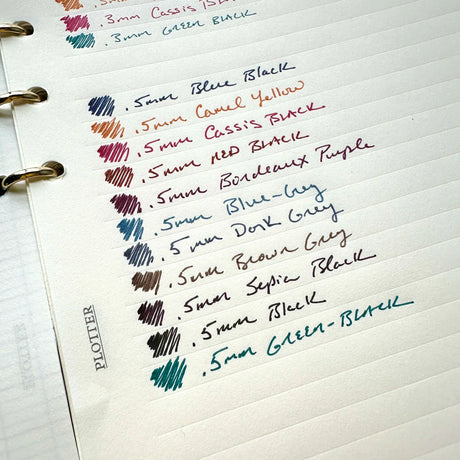 .3mm Cassis Black
.3mm Green Black
.5mm Blue Black
.5mm Camel Yellow
.5mm Cassis Black
.5mm Red Black
.5mm Bordeaux Purple
.5mm Blue-Grey
.5mm Dark Grey
.5mm Brown Grey
.5mm Sepia Black
.5mm Black
.5mm Green-Black
PLOTTER